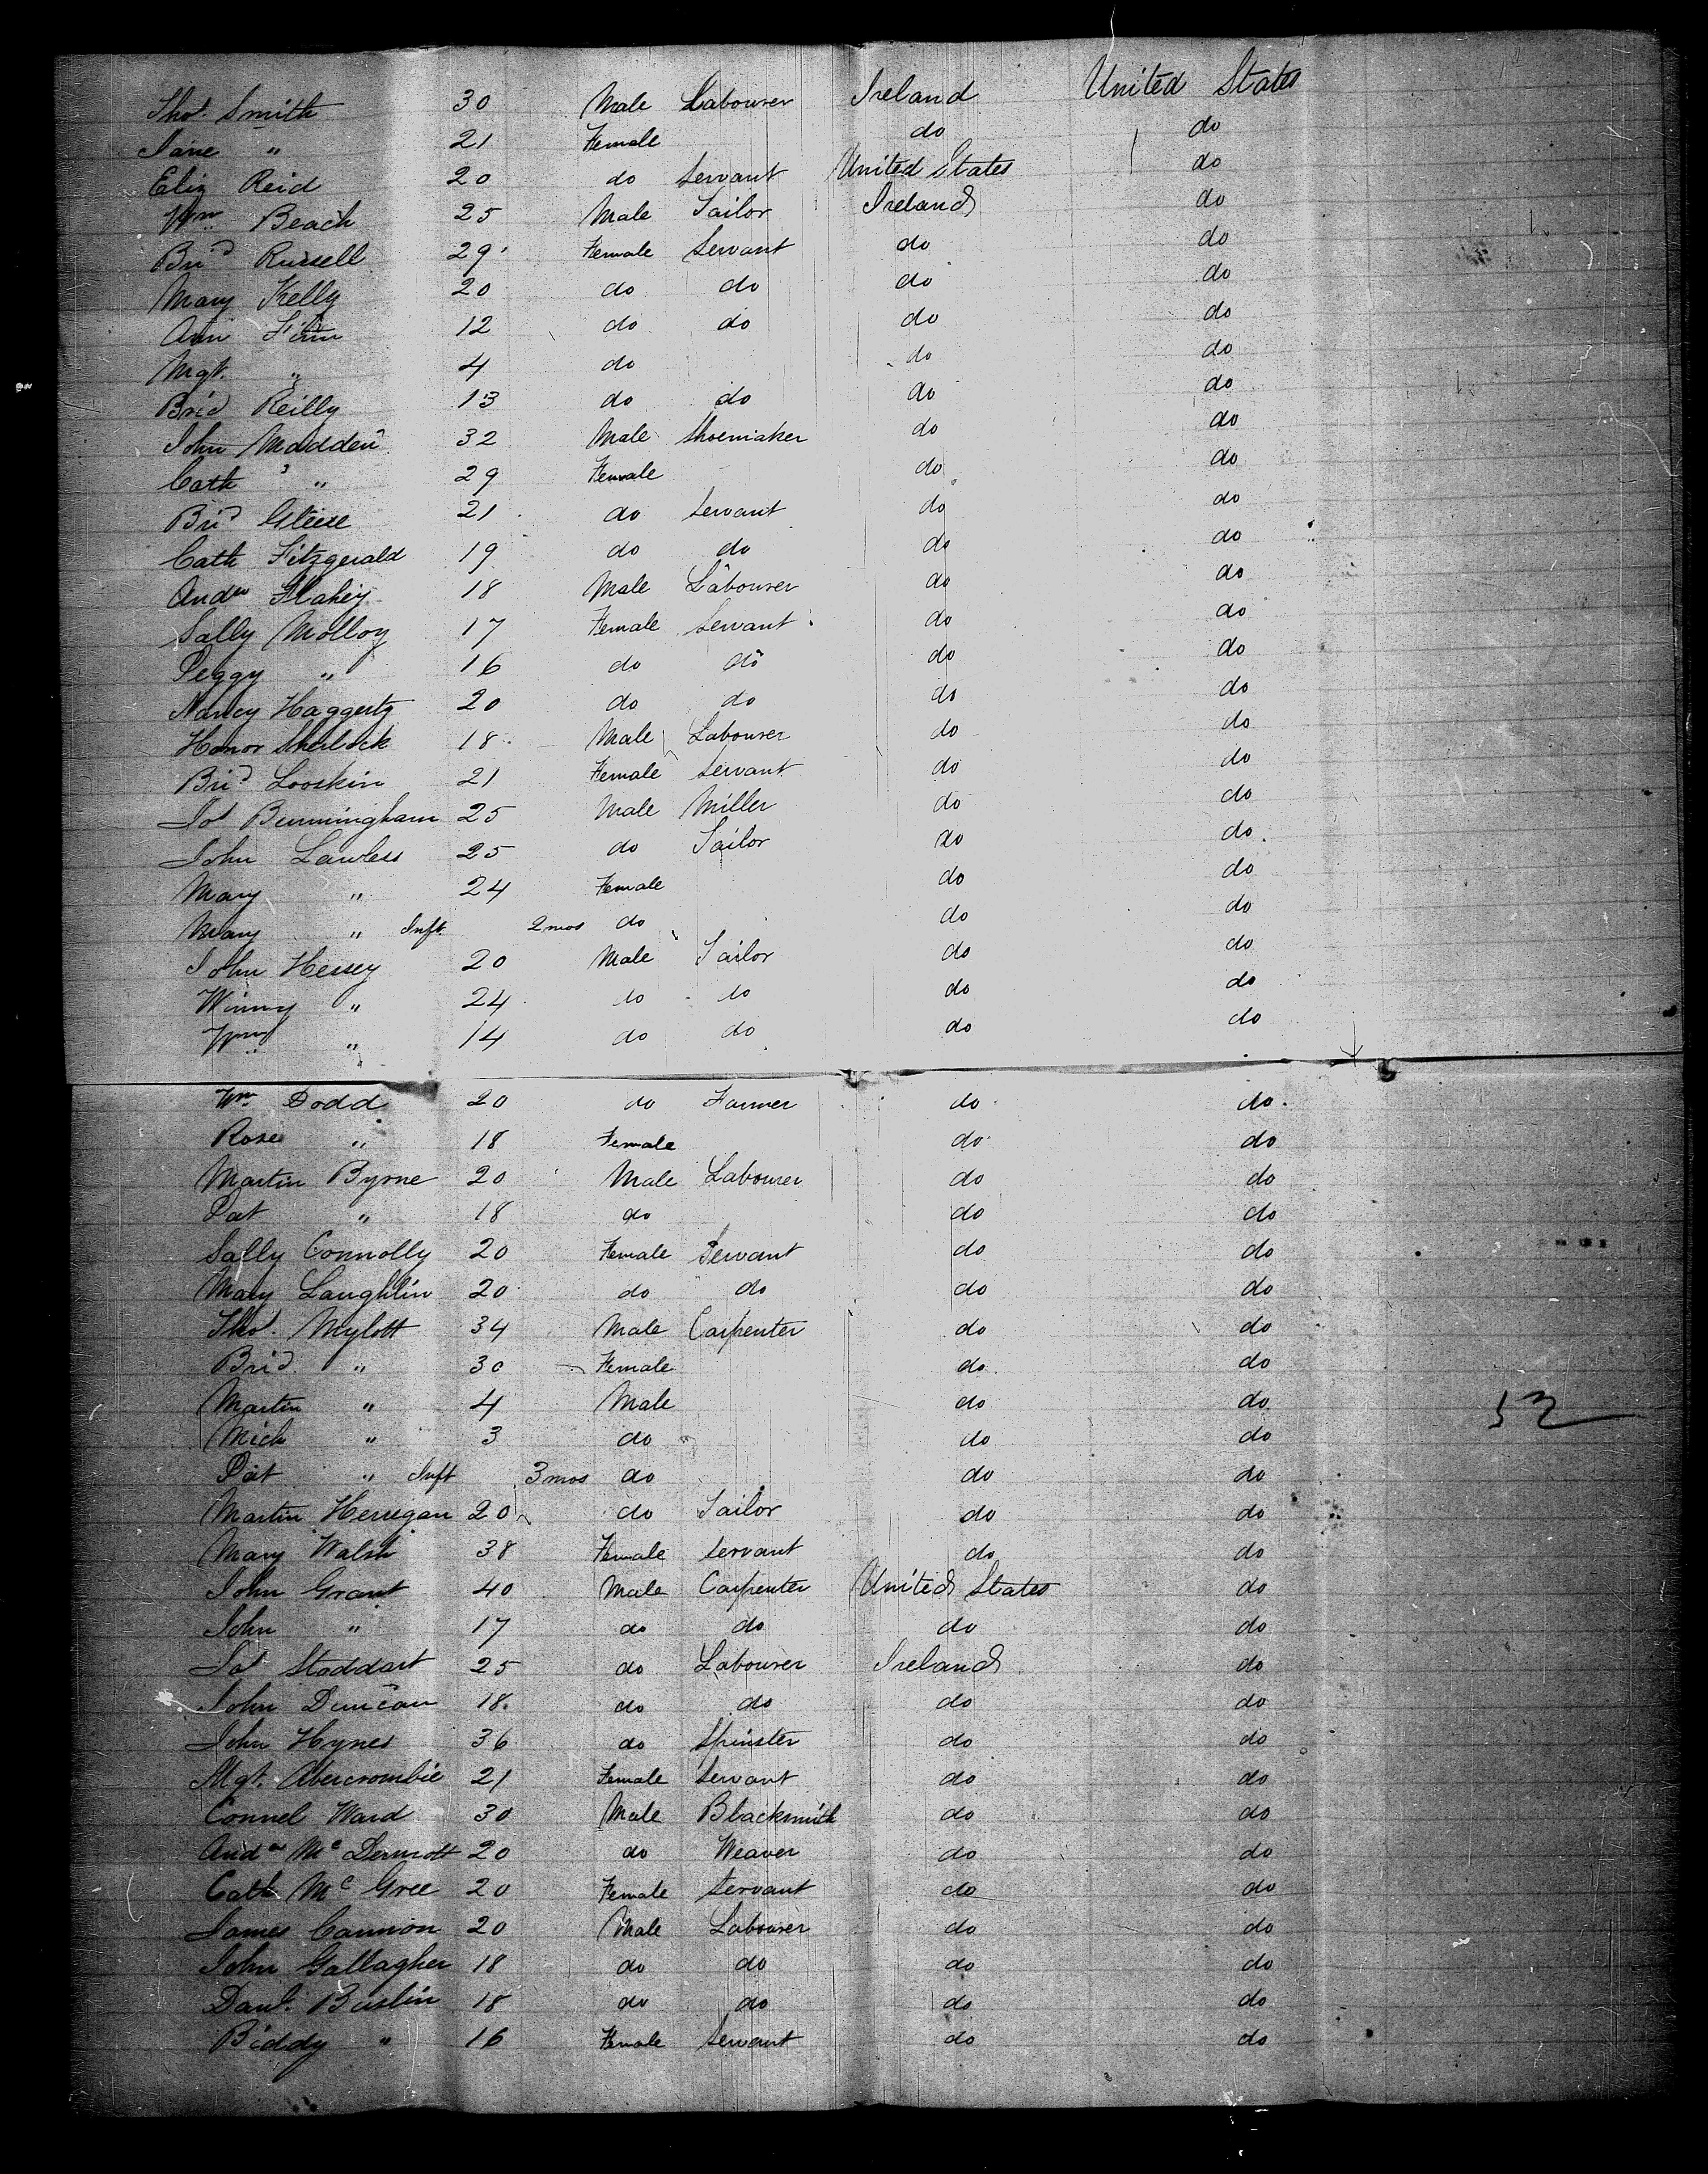 Thos. Smith 30 Male Labourer Ireland United States
Jane " 21 Female do do
Eliz Reid 20 do Servant United States do
Wm Beach 25 Male Tailor Ireland do
Brid Russell 29 Female Servant do do
Mary Kelly 20 do do do do
Ann Finn 12 do do do do
Mgt. " 4 do do do
Brid Reilly 13 do do do do
John Madden 32 Male Shoemaker do do
Cath " 29 Female do do
Brid 21 do Servant do do
Cath Fitzgerald 19 do do do do
Andw Flahey 18 Male Labourer do do
Sally Molloy 17 Female Servant do do
Peggy " 16 do do do do
Nancy Haggerty 20 do do do do
Honor Sherlock 18 Male Labourer do do
Brid Looskin 21 Female Servant do do
Jos Bermingham 25 Male Miller do do
John Lawless 25 do Tailor do do
Mary " 24 Female do do
Mary " Inft 2 mos do do do
John Hessey 20 Male Tailor do do
Winny " 24 do do do do
Wm " 14 do do do do
Wm Dodd 20 do Farmer do do
Rose " 18 Female do do
Martin Byrne 20 Male Labourer do do
Pat " 18 do do do
Sally Connolly 20 Female Servant do do
Mary Laughlin 20 do do do do
Thos. Mylott 34 Male Carpenter do do
Brid. " 30 Female do do
Martin " 4 Male do do
Mich " 3 do do do
Pat " Inft 3 mos do do do
Martin Herregan 20 do Tailor do do
Mary Walsh 38 Female Servant do do
John Grant 40 Male Carpenter United States do
John " 17 do do do do
Jas Stoddart 25 do Labourer Ireland do
John Duncan 18 do do do do
John Hynes 36 do Spinster do do
Mgt. Abercrombie 21 Female Servant do do
Connel Ward 30 Male Blacksmith do do
Andw McDermott 20 do Weaver do do
Cath McGree 20 Female Servant do do
James Cannon 20 Male Labourer do do
John Gallagher 18 do do do do
Danl. Buslin 18 do do do do
Biddy " 16 Female Servant do do
52